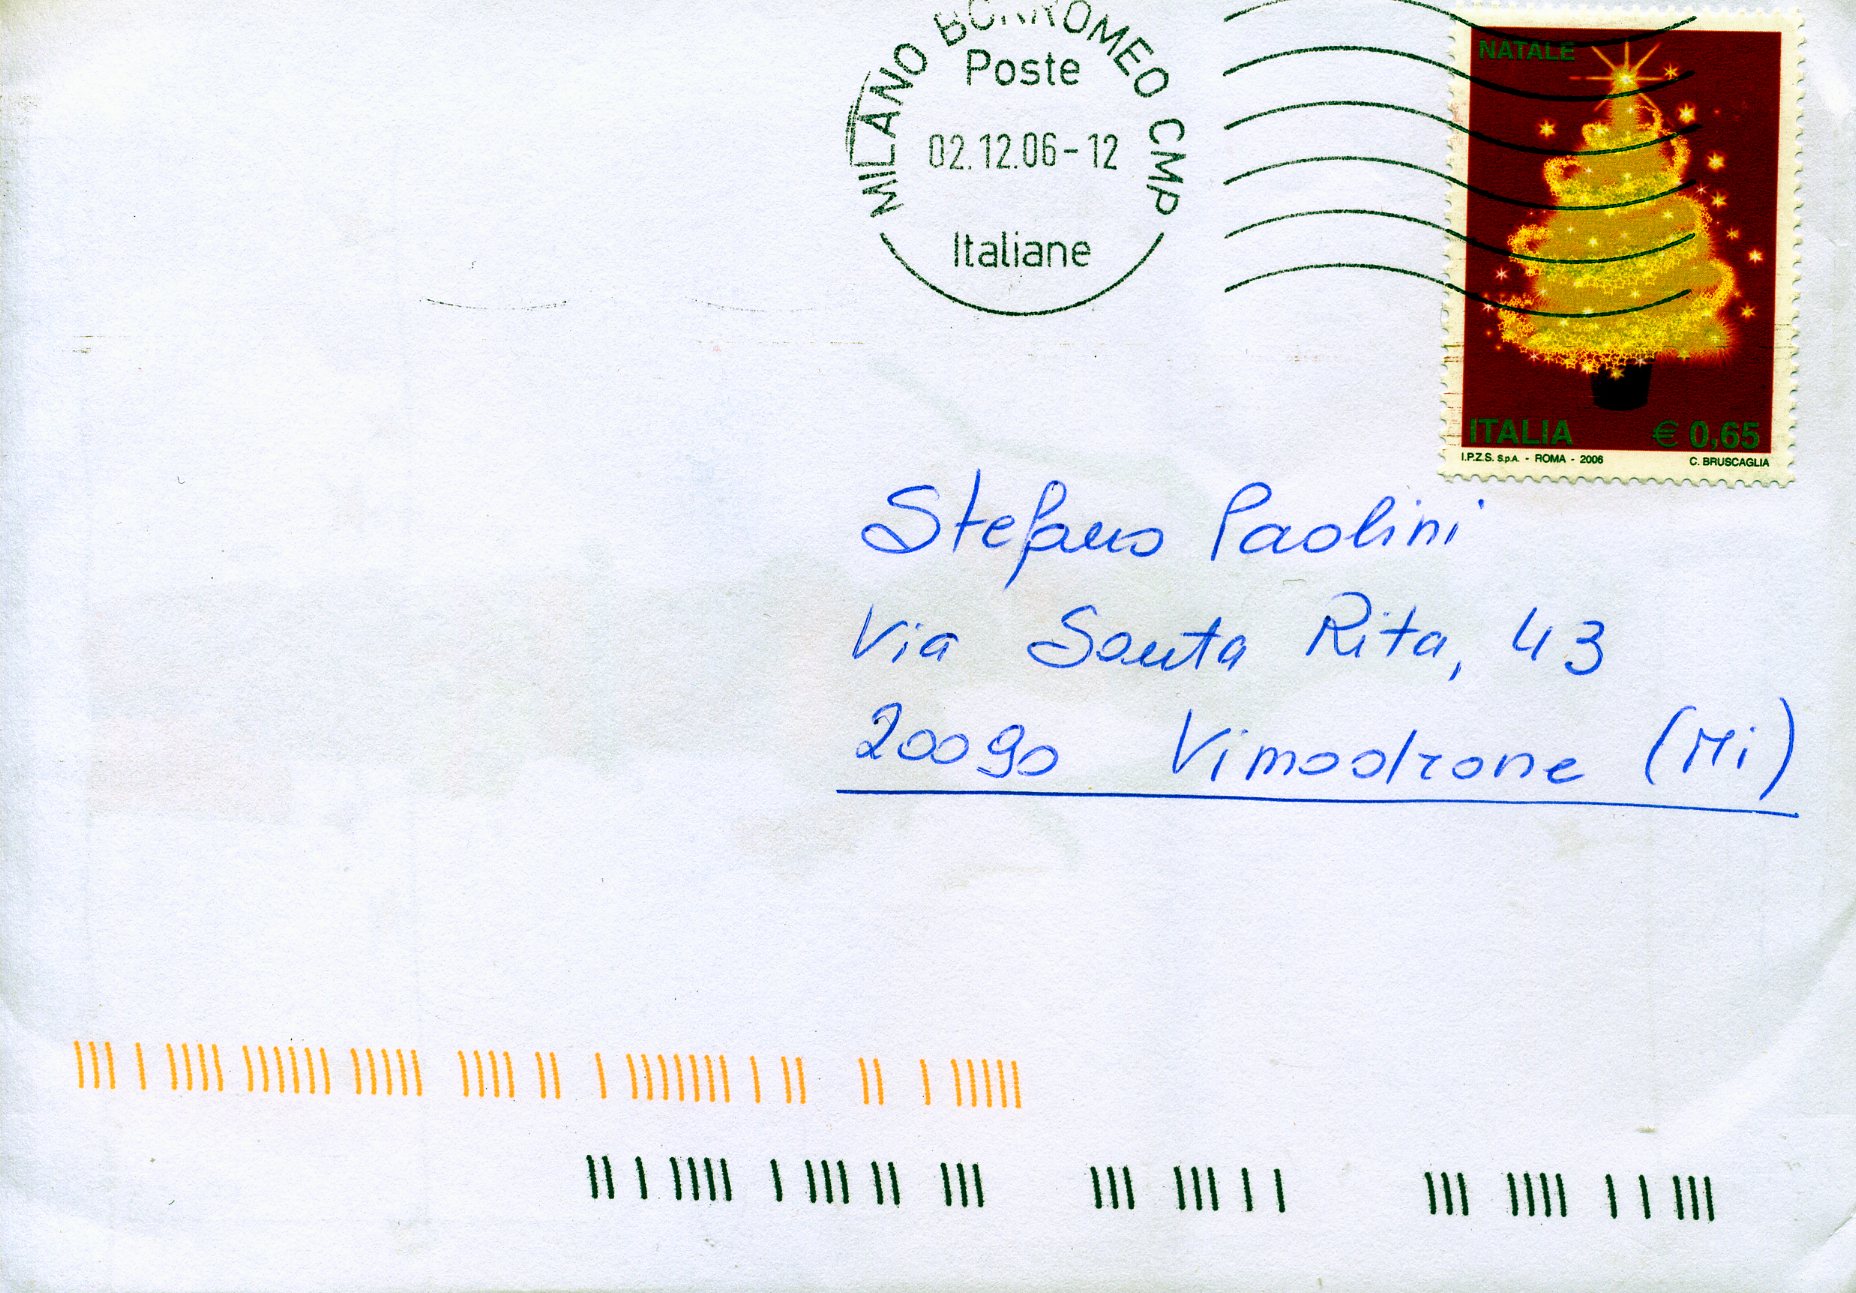 MILANO BORROMEO CMP
Poste
02.12.06-12
Italiane
NATALE
ITALIA € 0,65
I.P.Z.S. S.p.A. - ROMA - 2006 C. BRUSCAGLIA
Stefano Paolini
Via Santa Rita, 43
20090 Vimodrone (Mi)